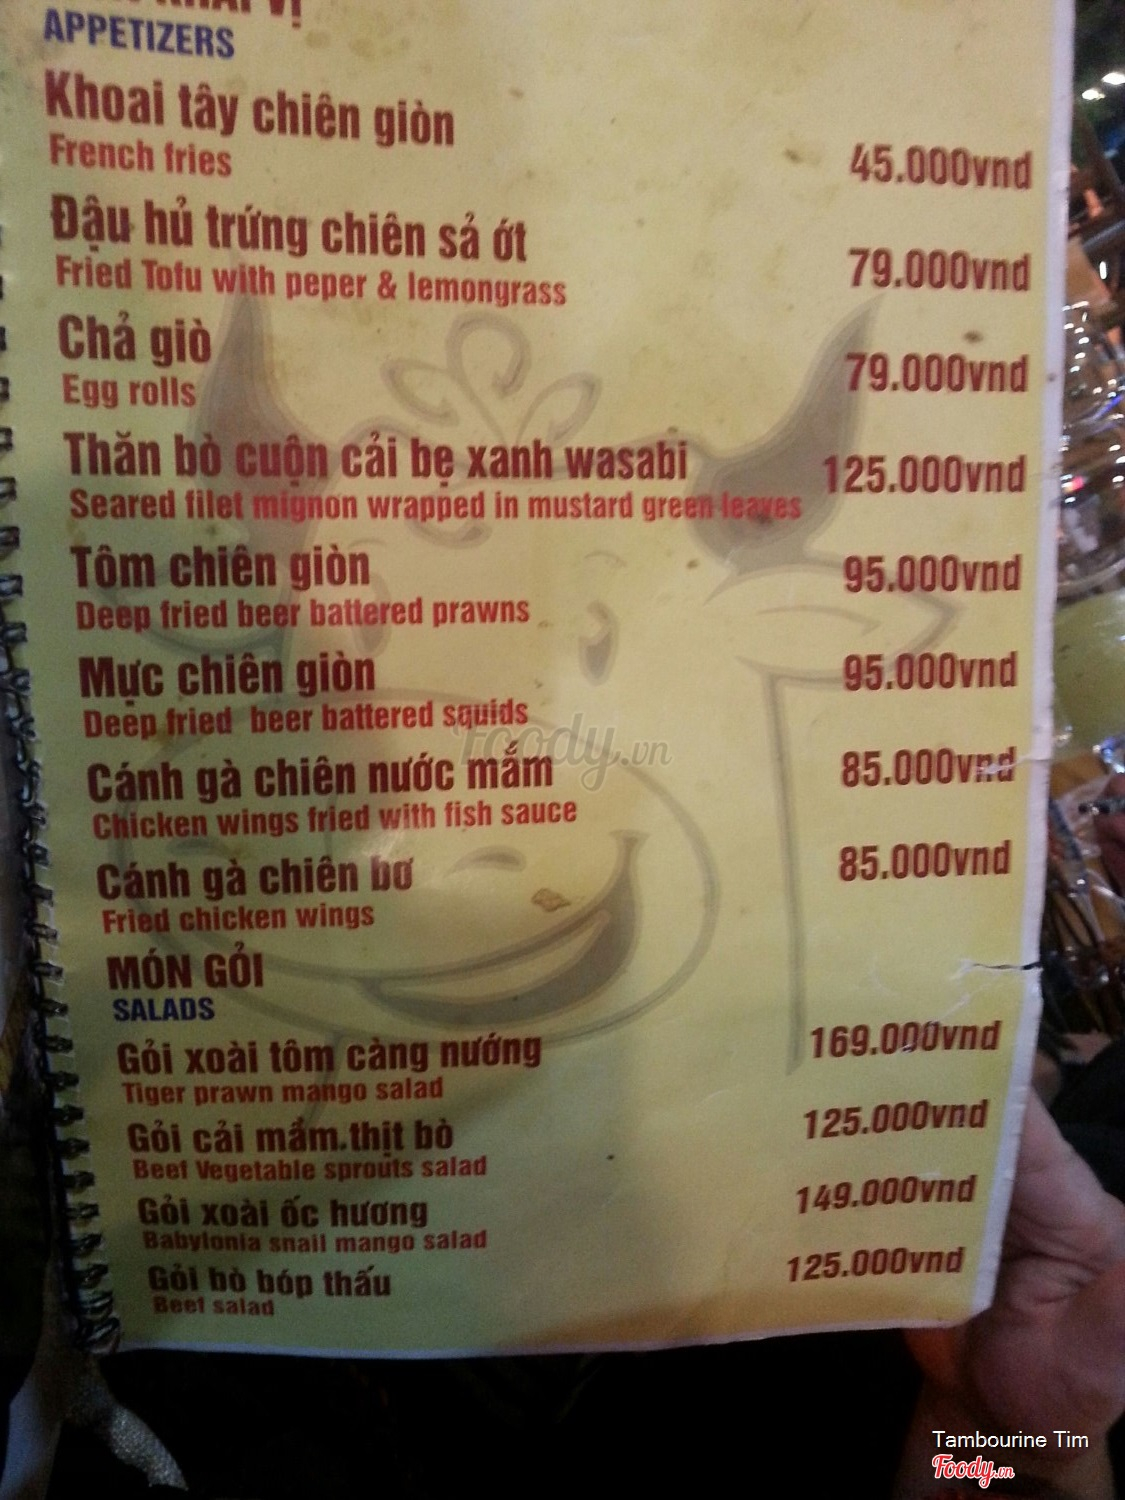 APPETIZERS
Khoai tây chiên giòn
French fries
45.000vnd
Đậu hủ trứng chiên sả ớt
Fried Tofu with peper & lemongrass
79.000vnd
Chả giò
Egg rolls
79.000vnd
Thăn bò cuộn cải bẹ xanh wasabi
Seared filet mignon wrapped in mustard green leaves
125.000vnd
Tôm chiên giòn
Deep fried beer battered prawns
95.000vnd
Mực chiên giòn
Deep fried beer battered squids
95.000vnd
Foody.vn
Cánh gà chiên nước mắm
Chicken wings fried with fish sauce
85.000vnd
Cánh gà chiên bơ
Fried chicken wings
85.000vnd
MÓN GỎI
SALADS
Gỏi xoài tôm càng nướng
Tiger prawn mango salad
169.000vnd
Gỏi cải mầm.thịt bò
Beef Vegetable sprouts salad
125.000vnd
Gỏi xoài ốc hương
Babylonia snail mango salad
149.000vnd
Gỏi bò bóp thấu
Beef salad
125.000vnd
Tambourine Tim
Foody.vn